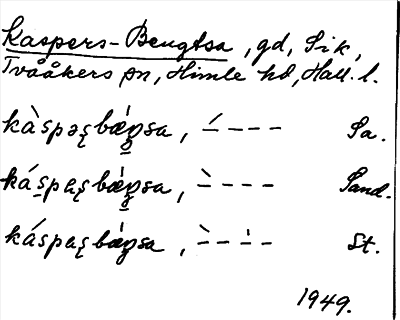 Kaspers-Bengtsa, gd, Sik,
Tvååkers sn, Himle hd, Hall. l.
kàspəʂbæŋsa, –́ – – – Sa.
káspɐʂbæŋsa, –̀ – – – Sand.
káspɐʂbæŋsa, –̀ – –̍ – St.
1949.